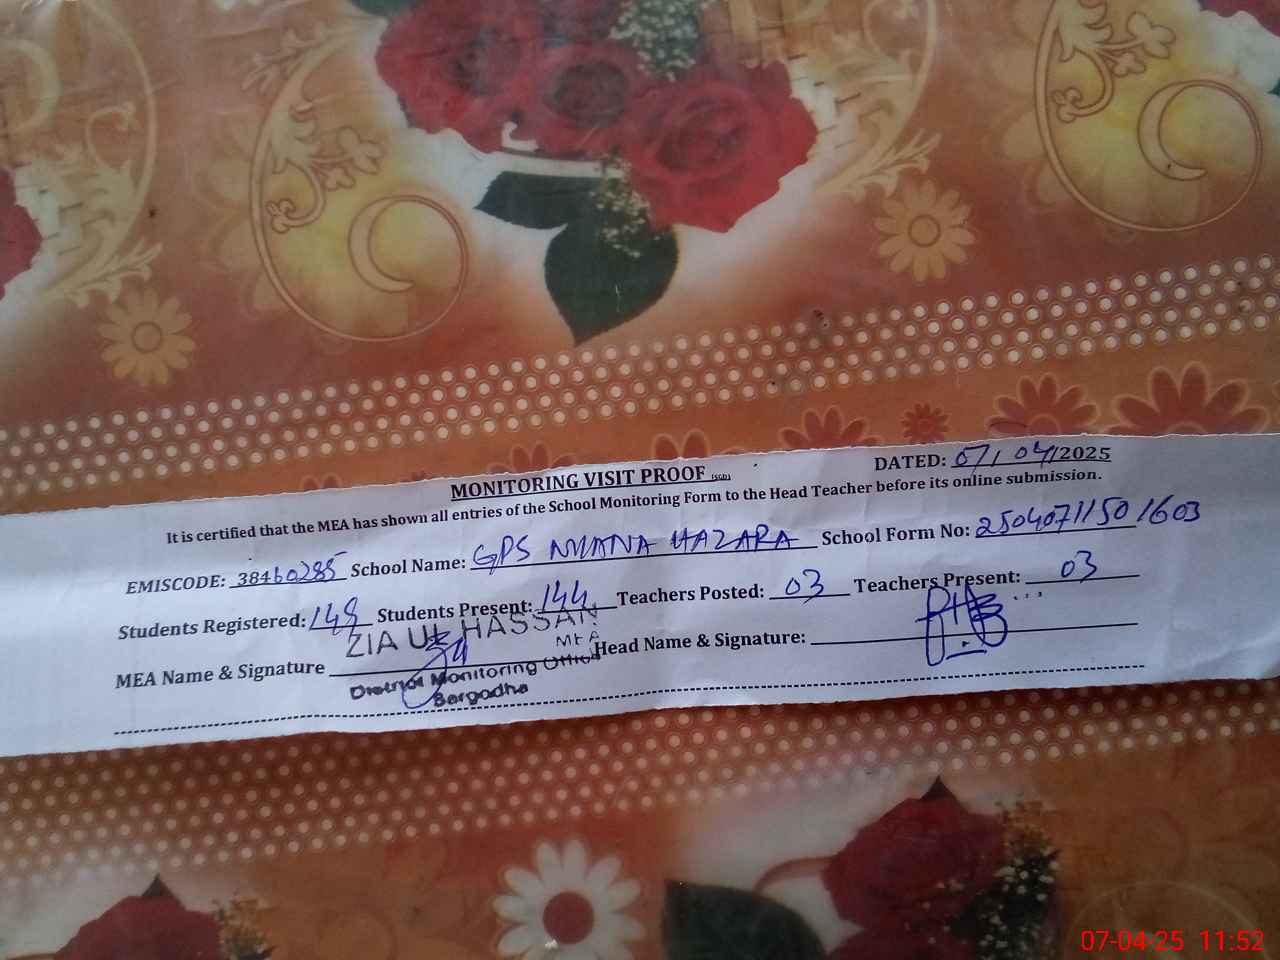 MONITORING VISIT PROOF (SGD)
DATED: 07/04/2025
It is certified that the MEA has shown all entries of the School Monitoring Form to the Head Teacher before its online submission.
EMISCODE: 38460285 School Name: GPS NIHANA HAZARA School Form No: 25040711501603
Students Registered: 148 Students Present: 144 Teachers Posted: 03 Teachers Present: 03
ZIA UL HASSAN
MEA
MEA Name & Signature Head Name & Signature:
District Monitoring Office
Sargodha
07-04-25 11:52